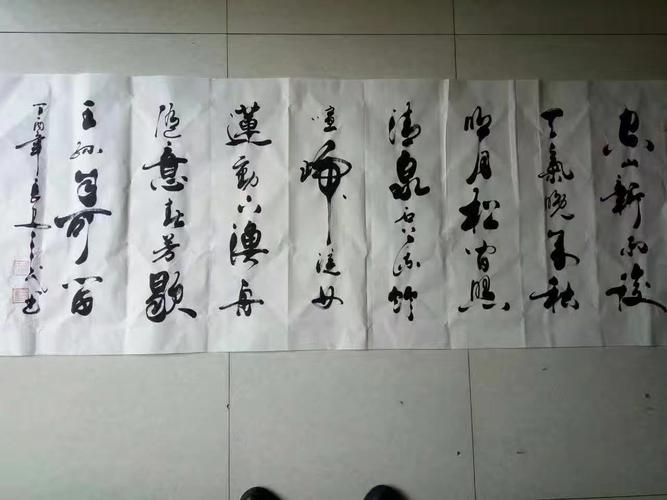 空山新雨後
天氣晚来秋
明月松間照
清泉石上流竹
喧歸浣女
蓮動下漁舟
随意春芳歇
王孫自可留
丁酉年
书